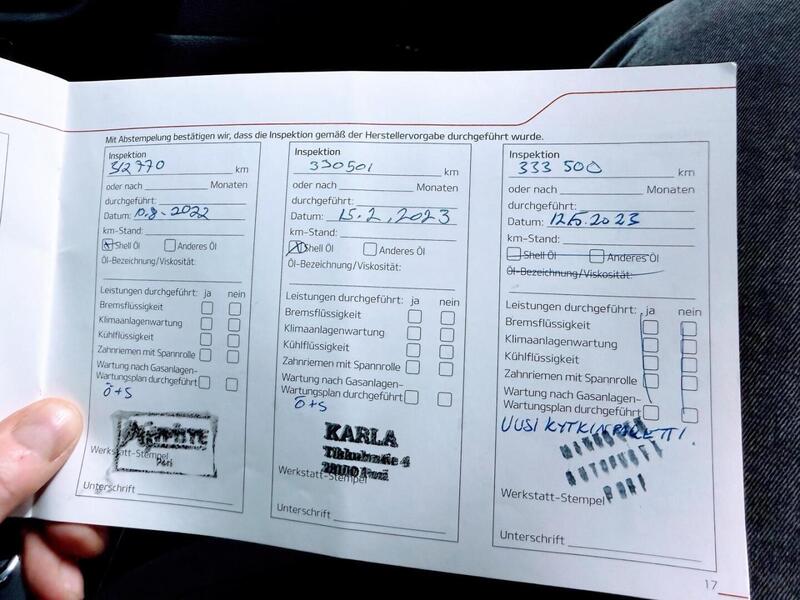 Mit Abstempelung bestätigen wir, dass die Inspektion gemäß der Herstellervorgabe durchgeführt wurde.
Inspektion
312770 km
oder nach Monaten
durchgeführt:
Datum: 10.8-2022
km-Stand:
Shell Öl Anderes Öl
Öl-Bezeichnung/Viskosität:
Leistungen durchgeführt: ja nein
Bremsflüssigkeit
Klimaanlagenwartung
Kühlflüssigkeit
Zahnriemen mit Spannrolle
Wartung nach Gasanlagen-
Wartungsplan durchgeführt
Ö+S
Pori
Werkstatt-Stempel
Unterschrift
Inspektion
330501 km
oder nach Monaten
durchgeführt:
Datum: 15.2.2023
km-Stand:
Shell Öl Anderes Öl
Öl-Bezeichnung/Viskosität:
Leistungen durchgeführt: ja nein
Bremsflüssigkeit
Klimaanlagenwartung
Kühlflüssigkeit
Zahnriemen mit Spannrolle
Wartung nach Gasanlagen-
Wartungsplan durchgeführt
Ö+S
KARLA
4
28100 Pori
Werkstatt-Stempel
Unterschrift
Inspektion
333 500 km
oder nach Monaten
durchgeführt:
Datum: 12.5.2023
km-Stand:
Shell Öl Anderes Öl
Öl-Bezeichnung/Viskosität:
Leistungen durchgeführt: ja nein
Bremsflüssigkeit
Klimaanlagenwartung
Kühlflüssigkeit
Zahnriemen mit Spannrolle
Wartung nach Gasanlagen-
Wartungsplan durchgeführt
UUSI KYTKINPAKETTI.
PORI
Werkstatt-Stempel
Unterschrift
17